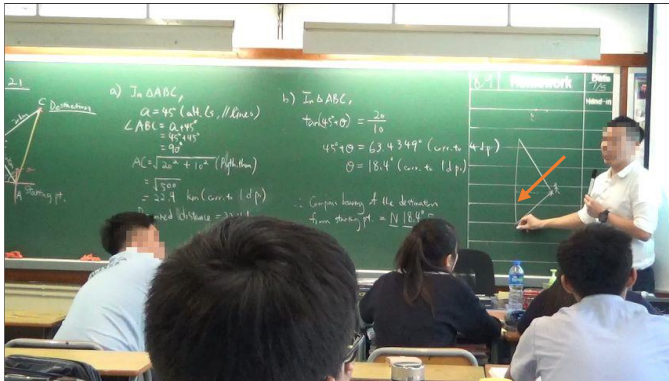 21
C Destination
A Starting pt.
a) In △ABC,
a = 45° (alt. ∠s, // lines)
∠ABC = a + 45°
= 45° + 45°
= 90°
AC = √20² + 10² (Pyth. thm)
= √500
= 22.4 km (corr. to 1 d.p.)
distance =
b) In △ABC,
tan(45° + θ) = 20/10
45° + θ = 63.4349° (corr. to 4 d.p.)
θ = 18.4° (corr. to 1 d.p.)
∴ Compass bearing of the destination
from starting pt. = N 18.4°
Homework
Date
Hand-in